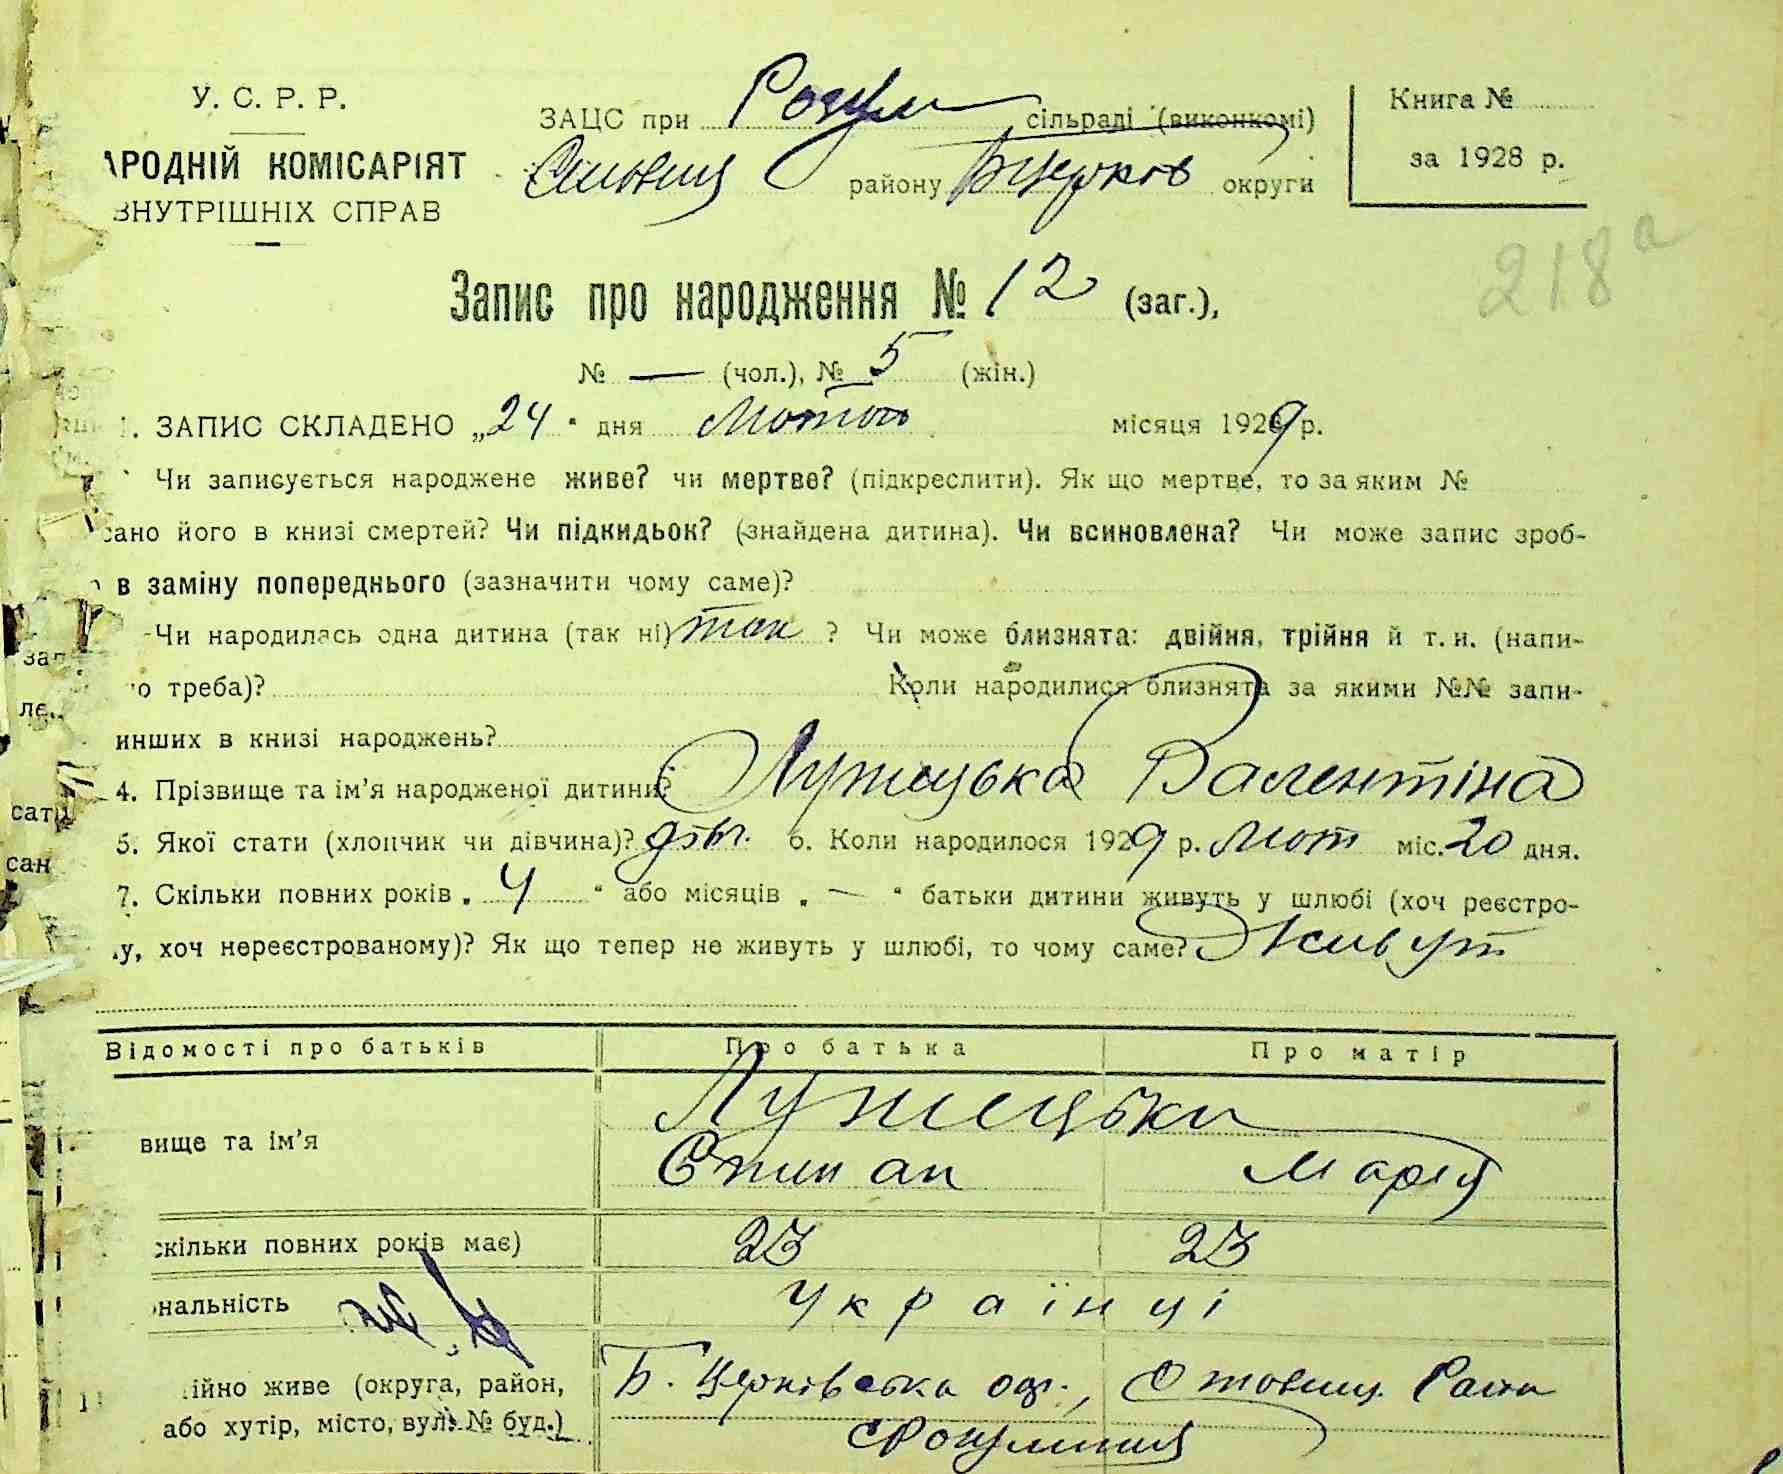 У. С. Р. Р.
АРОДНІЙ КОМІСАРІЯТ
ВНУТРІШНІХ СПРАВ
ЗАЦС при Розум сільраді (виконкомі)
району Б Церков округи
Книга №
за 1928 р.
218а
Запис про народження № 12 (заг.),
№ — (чол.), № 5 (жін.)
1. ЗАПИС СКЛАДЕНО „24“ дня Лютого місяця 1929 р.
Чи записується народжене живе? чи мертве? (підкреслити). Як що мертве, то за яким №
сано його в книзі смертей? Чи підкидьок? (знайдена дитина). Чи всиновлена? Чи може запис зроб-
в заміну попереднього (зазначити чому саме)?
Чи народилась одна дитина (так ні) так ? Чи може близнята: двійня, трійня й т. и. (напи-
о треба)? Коли народилися близнята за якими №№ запи-
инших в книзі народжень?
4. Прізвище та ім’я народженої дитини? Лужецька Валентіна
5. Якої стати (хлопчик чи дівчина)? дівч. 6. Коли народилося 1929 р. Лют міс. 20 дня.
7. Скільки повних років „4“ або місяців „—“ батьки дитини живуть у шлюбі (хоч реєстро-
у, хоч нереєстрованому)? Як що тепер не живуть у шлюбі, то чому саме? Живут
Відомості про батьків Про батька Про матір
вище та ім’я Лужецьки
Степан Марія
скільки повних років має) 23 23
нальність Українці
ійно живе (округа, район, Б. Церківська окр.,
або хутір, місто, вул. № буд.)